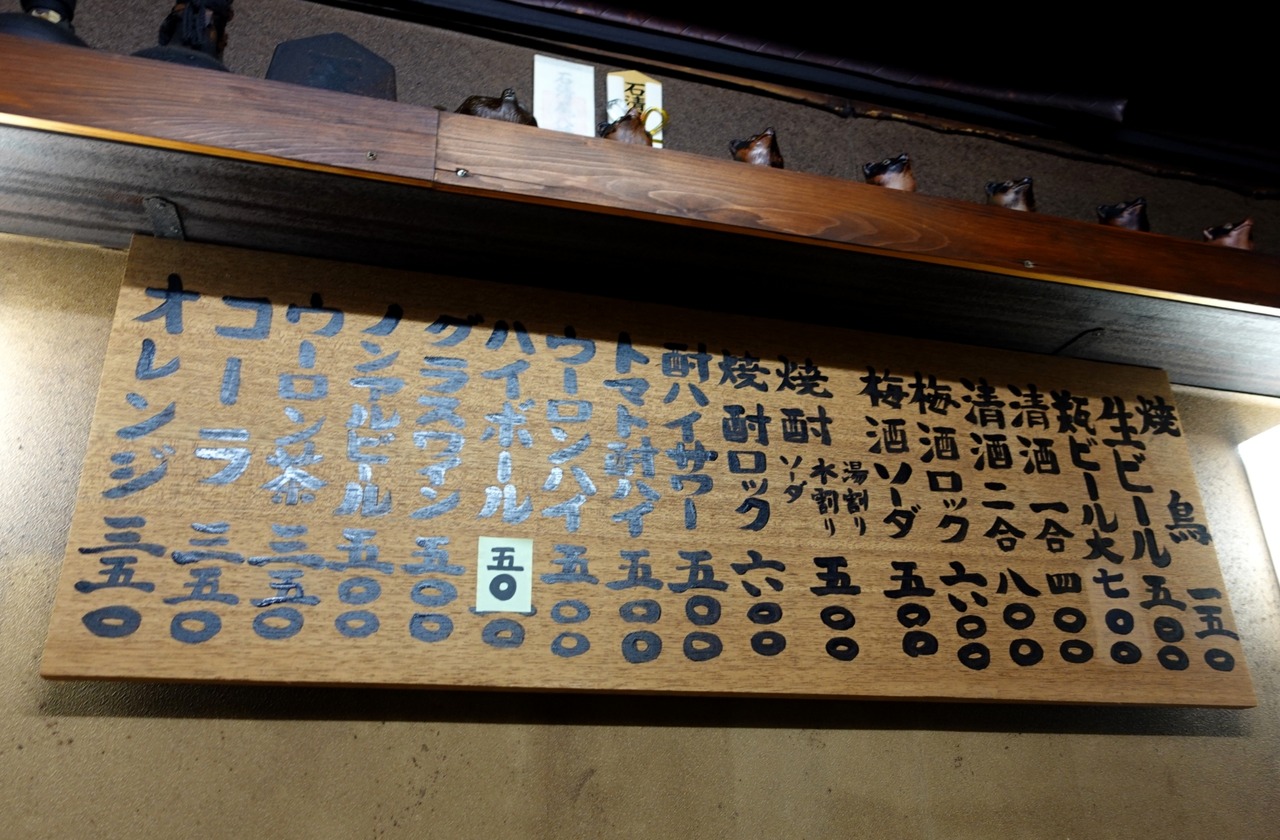 焼鳥 一五〇
生ビール 五〇〇
瓶ビール大 七〇〇
清酒 一合 四〇〇
清酒 二合 八〇〇
梅酒ロック 六〇〇
梅酒ソーダ 五〇〇
焼酎 湯割り 水割り ソーダ 五〇〇
焼酎ロック 六〇〇
酎ハイサワー 五〇〇
トマト酎ハイ 五〇〇
ウーロンハイ 五〇〇
ハイボール 五〇〇
グラスワイン 五〇〇
ノンアルビール 五〇〇
ウーロン茶 三五〇
コーラ 三五〇
オレンジ 三五〇
石清